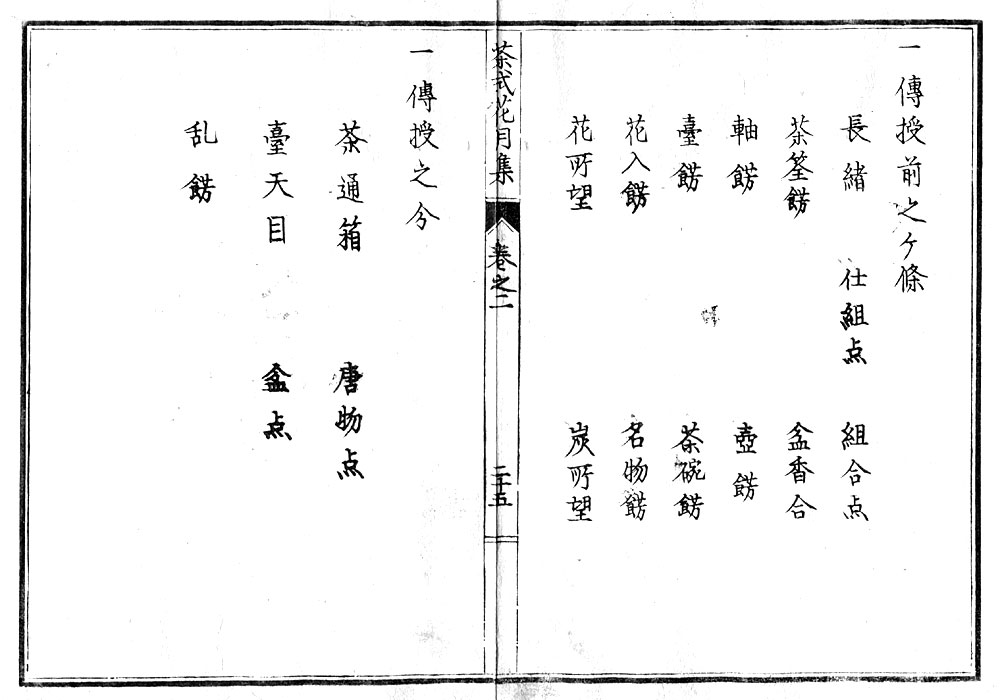 一傳授前之ヶ條
長緒　仕組点　組合点
茶筌餝　盆香合
軸餝　壺餝
臺餝　茶碗餝
花入餝　名物餝
花所望　炭所望
茶式花月集　卷之二　二十五
一傳授之分
茶通箱　唐物点
臺天目　盆点
乱餝